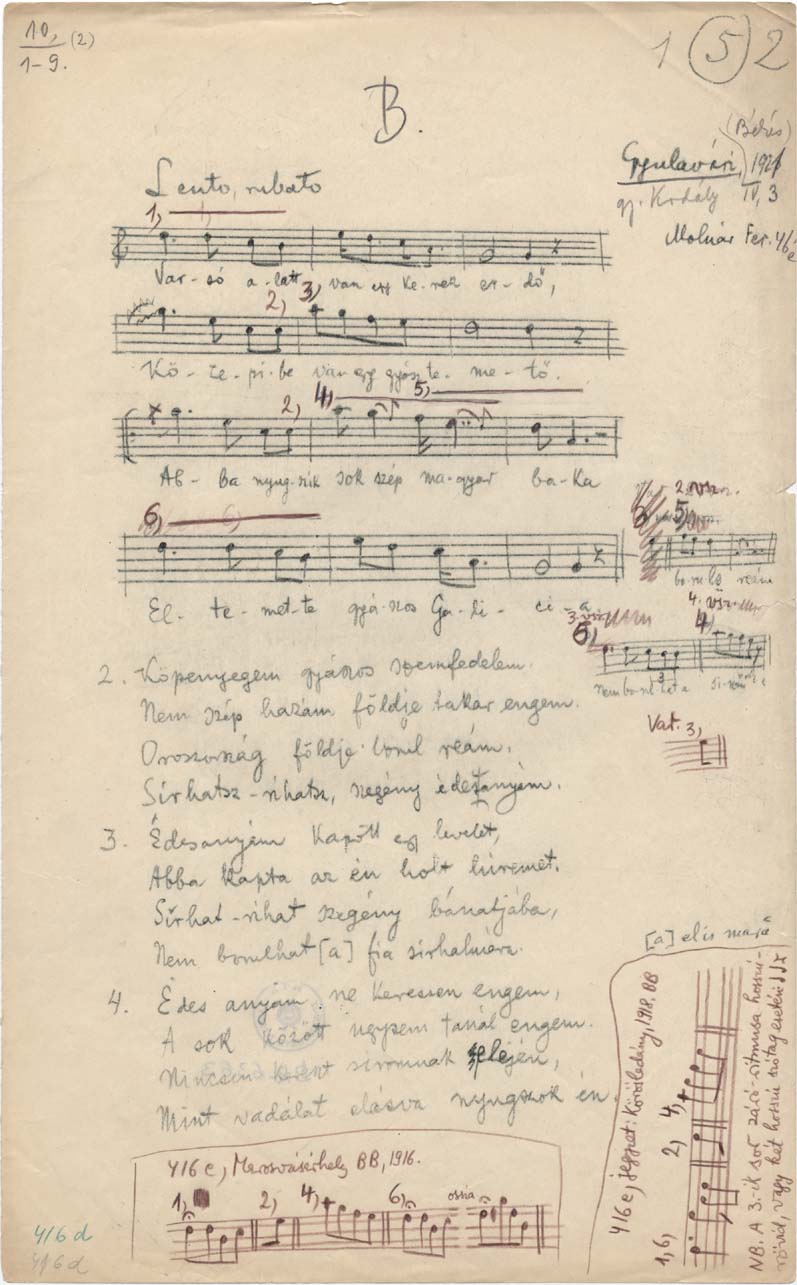 10,
1-9. (2)
1 5 2
B.
(Békés)
Gyulavári, 1921
gj. Kodály IV, 3
Molnár Fer. 416e
Lento, rubato
1,
Var-só a-latt van egy ke-rek er-dő,
2) 3)
Kö-ze-pi-be van egy gyász te-me-tő.
2) 4) 5)
Ab-ba nyug-szik sok szép ma-gyar ba-ka
6)
El-te-met-te gyá-szos Ga-lí-ci-a
2. vsz.
5)
bo-rul reám
4. vsz.
3. vsz.
6) 4)
3
nem bo-rul-hat a
Vat. 3,
2. Köpenyegem gyászos szemfedelem.
Nem szép hazám földje takar engem.
Oroszország földje borul reám,
Sirhatsz-rihatsz, szegény édesanyám.
3. Édesanyám kapott egy levelet,
Abba kapta az én holt híremet.
Sírhat-rihat szegény bánatjába,
Nem borulhat [a] fia sírhalmára.
4. Édes anyám ne keressen engem,
A sok között ugysem tanál engem.
Nincsen kereszt siromnak elején,
Mint vadálat elásva nyugszok én.
[a] el is marad
416e, Marosvásárhely BB, 1916.
1) 2) 4) 6) ossia
416e, jegyzet: Körösladány, 1918, BB
1,6) 2) 4)
NB. A 3.-ik sor záró-ritmusa hosszú-
rövid, vagy két hosszú szótag esetén
416 d
416 d